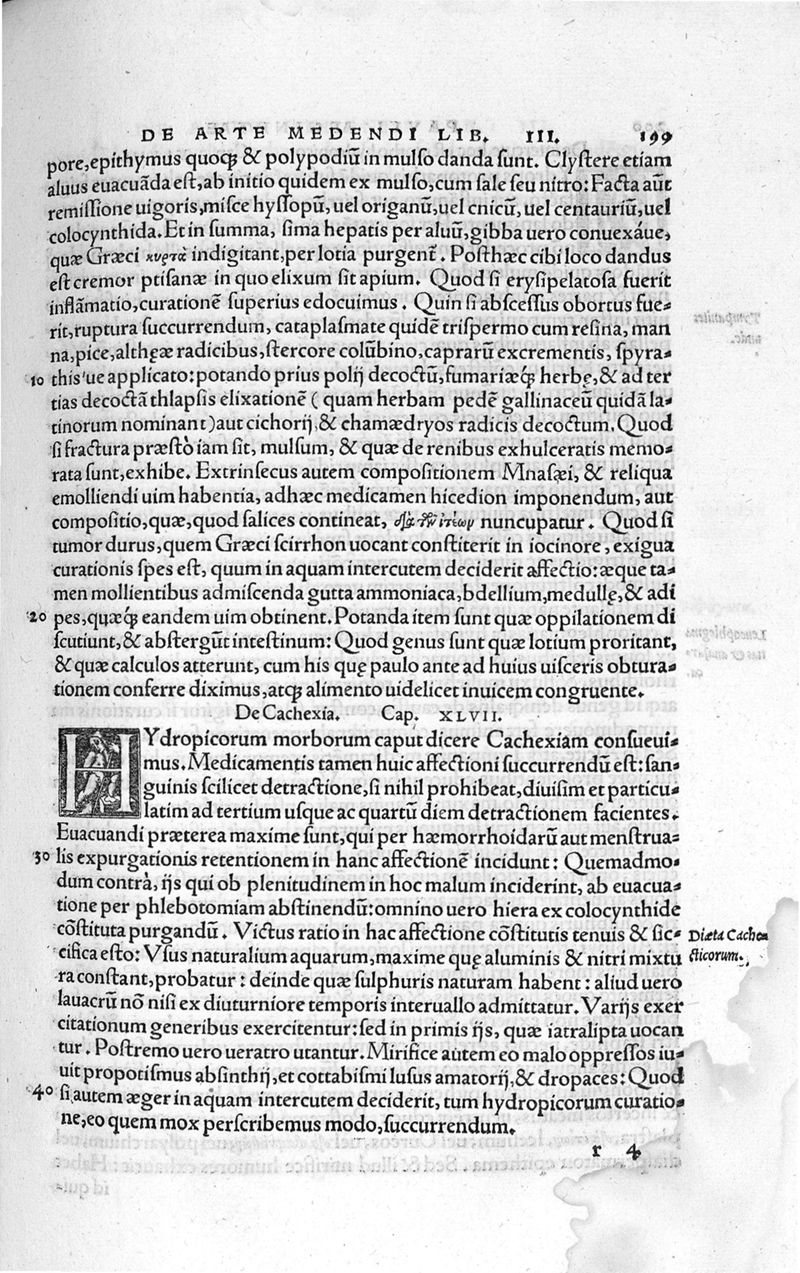 DE ARTE MEDENDI LIB. III. 199
pore,epithymus quoqꝫ & polypodiũ in mulſo danda ſunt. Clyſtere etiam
aluus euacuãda eſt,ab initio quidem ex mulſo,cum ſale ſeu nitro: Facta aũt
remiſſione uigoris,miſce hyſſopũ, uel origanũ,uel cnicũ, uel centauriũ,uel
colocynthida. Et in ſumma, ſima hepatis per aluũ, gibba uero conuexáue,
quæ Græci κυρτὰ indigitant,per lotia purgent̃. Poſthæc cibi loco dandus
eſt cremor ptiſanæ in quo elixum ſit apium. Quod ſi eryſipelatoſa fuerit
inflãmatio,curationẽ ſuperius edocuimus. Quin ſi abſceſſus obortus fue-
rit,ruptura ſuccurrendum, cataplaſmate quidẽ triſpermo cum reſina, man
na,pice,althęæ radicibus,ſtercore colũbino,caprarũ excrementis, ſpyra-
10 this'ue applicato: potando prius polij decoctũ,fumariæqꝫ herbę,& ad ter
tias decoctã thlapſis elixationẽ ( quam herbam pedẽ gallinaceũ quidã la-
tinorum nominant) aut cichorij,& chamædryos radicis decoctum. Quod
ſi fractura præſtò iam ſit, mulſum, & quæ de renibus exhulceratis memo-
rata ſunt,exhibe. Extrinſecus autem compoſitionem Mnaſæi, & reliqua
emolliendi uim habentia, adhæc medicamen hicedion imponendum, aut
compoſitio,quæ,quod ſalices contineat, διὰ τῶν ἰτέων nuncupatur. Quod ſi
tumor durus, quem Græci ſcirrhon uocant conſtiterit in iocinore, exigua
curationis ſpes eſt, quum in aquam intercutem deciderit affectio: æque ta-
men mollientibus admiſcenda gutta ammoniaca, bdellium,medullę,& adi
20 pes,quæqꝫ eandem uim obtinent. Potanda item ſunt quæ oppilationem di
ſcutiunt,& abſtergũt inteſtinum: Quod genus ſunt quæ lotium proritant,
& quæ calculos atterunt, cum his quę paulo ante ad huius uiſceris obtura-
tionem conferre diximus,atqꝫ alimento uidelicet inuicem congruente.
De Cachexia. Cap. XLVII.
HYdropicorum morborum caput dicere Cachexiam conſueui-
mus. Medicamentis tamen huic affectioni ſuccurrendũ eſt: ſan-
guinis ſcilicet detractione,ſi nihil prohibeat, diuiſim et particu-
latim ad tertium uſque ac quartũ diem detractionem facientes.
Euacuandi præterea maxime ſunt,qui per hæmorrhoidarũ aut menſtrua-
30 lis expurgationis retentionem in hanc affectionẽ incidunt: Quemadmo-
dum contrà, ijs qui ob plenitudinem in hoc malum inciderint, ab euacua-
tione per phlebotomiam abſtinendũ: omnino uero hiera ex colocynthide
cõſtituta purgandũ. Victus ratio in hac affectione cõſtitutis tenuis & ſic-
cifica eſto: Vſus naturalium aquarum,maxime quę aluminis & nitri mixtu
ra conſtant,probatur: deinde quæ ſulphuris naturam habent: aliud uero
lauacrũ nõ niſi ex diuturniore temporis interuallo admittatur. Varijs exer
citationum generibus exercitentur: ſed in primis ijs, quæ iatralipta uocan
tur. Poſtremo uero ueratro utantur. Mirifice autem eo malo oppreſſos iu-
uit propotiſmus abſinthij,et cottabiſmi luſus amatorij,& dropaces: Quod
40 ſi autem æger in aquam intercutem deciderit, tum hydropicorum curatio-
ne,eo quem mox perſcribemus modo,ſuccurrendum.
Diæta Cache
cticorum.
r 4